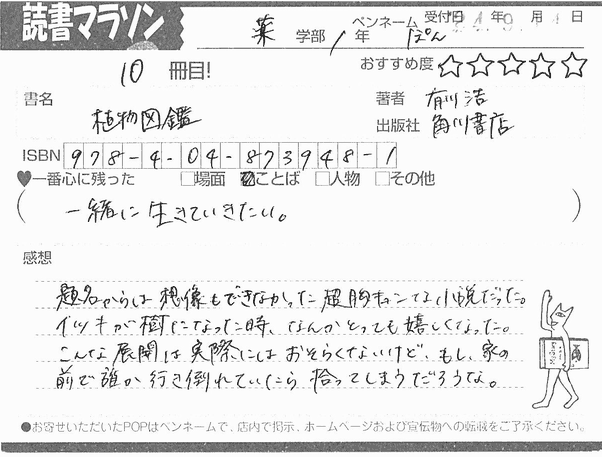 読書マラソン
薬 学部 1 年
ペンネーム ぽん
受付日 年 月 日
10 冊目!
おすすめ度 ☆☆☆☆☆
書名
植物図鑑
著者 有川浩
出版社 角川書店
ISBN 978-4-04-873948-1
♥一番心に残った □場面 ☑ことば □人物 □その他
(一緒に生きていきたい。)
感想
題名からは想像もできなかった超胸キュンな小説だった。
イツキが樹になった時、なんかとっても嬉しくなった。
こんな展開は実際にはおそらくないけど、もし、家の
前で誰か行き倒れていたら拾ってしまうだろうな。
●お寄せいただいたPOPはペンネームで、店内で掲示、ホームページおよび宣伝物への転載をご了承ください。